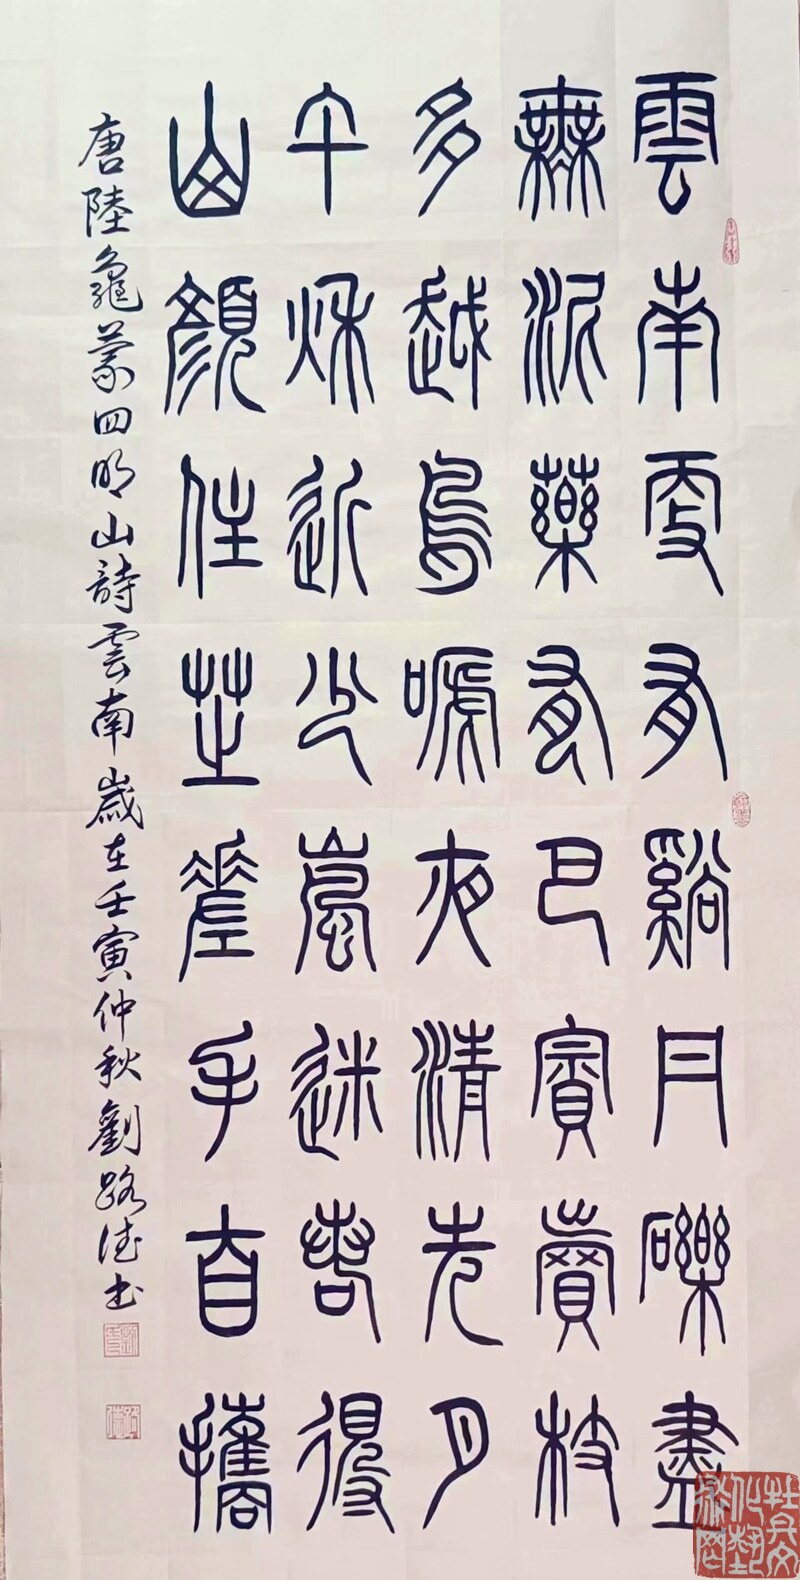 雲南更有谿丹礫盡
無泥藥有巴賨賣枝
多越鳥嗁夜清先月
午秋近少嵐迷若得
山顏住芝差手自攜
唐陸龜蒙四明山詩雲南歲在壬寅仲秋劉路德書